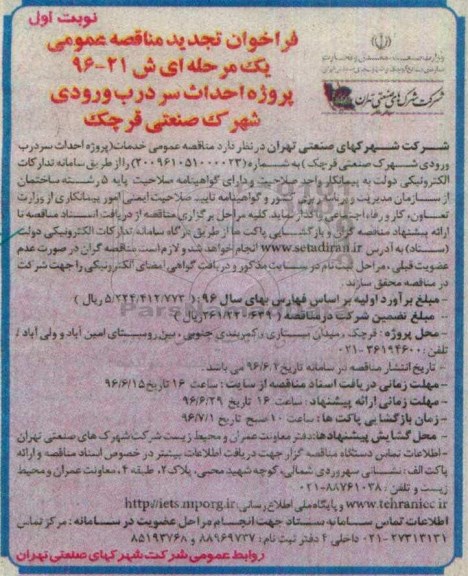 نوبت اول
فراخوان تجدید مناقصه عمومی
یک مرحله ای ش ۲۱-۹۶
پروژه احداث سر درب ورودی
شهرک صنعتی قرچک
شرکت شهرکهای صنعتی تهران
شرکت شهرکهای صنعتی تهران در نظر دارد مناقصه عمومی خدمات (پروژه احداث سردرب
ورودی شهرک صنعتی قرچک) به شماره (۲۰۰۹۶۱۰۵۱۰۰۰۰۲۳) را از طریق سامانه تدارکات
الکترونیکی دولت به پیمانکار واجد صلاحیت و دارای گواهینامه صلاحیت پایه ۵ رشته ساختمان
از سازمان مدیریت و کشور و گواهینامه تایید صلاحیت ایمنی امور پیمانکاری از وزارت
تعاون، کار و رفاه اجتماعی واگذار نماید. کلیه مراحل برگزاری مناقصه از دریافت اسناد مناقصه تا
ارائه پیشنهاد مناقصه گران و بازگشایی پاکت ها از طریق درگاه سامانه تدارکات الکترونیکی دولت
(ستاد) به آدرس www.setadiran.ir انجام خواهد شد و لازم است مناقصه گران در صورت عدم
عضویت قبلی، مراحل ثبت نام در سایت مذکور و دریافت گواهی امضای الکترونیکی را جهت شرکت
در مناقصه محقق سازند.
- مبلغ برآورد اولیه بر اساس فهارس بهای سال ۹۶: (۵/۲۲۴/۴۱۲/۷۷۳ ریال)
- مبلغ تضمین شرکت در مناقصه: (۲۶۱/۲۲۰/۶۳۹ ریال)
- محل پروژه: قرچک، میدان بیستاری، کمربندی جنوبی، بین روستای امین آباد و ولی آباد /
تلفن: ۳۶۱۹۴۶۰۰-۰۲۱
- تاریخ انتشار مناقصه در سامانه تاریخ ۹۶/۶/۲ می باشد.
- مهلت زمانی دریافت اسناد مناقصه از سایت: ساعت ۱۶ تاریخ ۹۶/۶/۱۵
- مهلت زمانی ارائه پیشنهاد: ساعت ۱۶ تاریخ ۹۶/۶/۲۹
- زمان بازگشایی پاکت ها: ساعت ۱۰ صبح تاریخ ۹۶/۷/۱
- محل گشایش پیشنهادها: دفتر معاونت عمران و محیط زیست شرکت شهرک های صنعتی تهران
- اطلاعات تماس دستگاه مناقصه گزار جهت دریافت اطلاعات بیشتر در خصوص اسناد مناقصه و ارائه
پاکت الف: نشانی سهروردی شمالی، کوچه شهید محبی، پلاک ۲، طبقه ۴، معاونت عمران و محیط
زیست و تلفن: ۸۸۷۶۱۰۳۸-۰۲۱
www.tehranicc.ir و پایگاه ملی اطلاع رسانی: http//iets.mporg.ir
اطلاعات تماس سامانه ستاد جهت انجام مراحل عضویت در سامانه: مرکز تماس
۲۷۳۱۳۱۳۱-۰۲۱ داخلی ۴ دفتر ثبت نام: ۸۸۹۶۹۷۳۷ و ۸۵۱۹۳۷۶۸
روابط عمومی شرکت شهرکهای صنعتی تهران